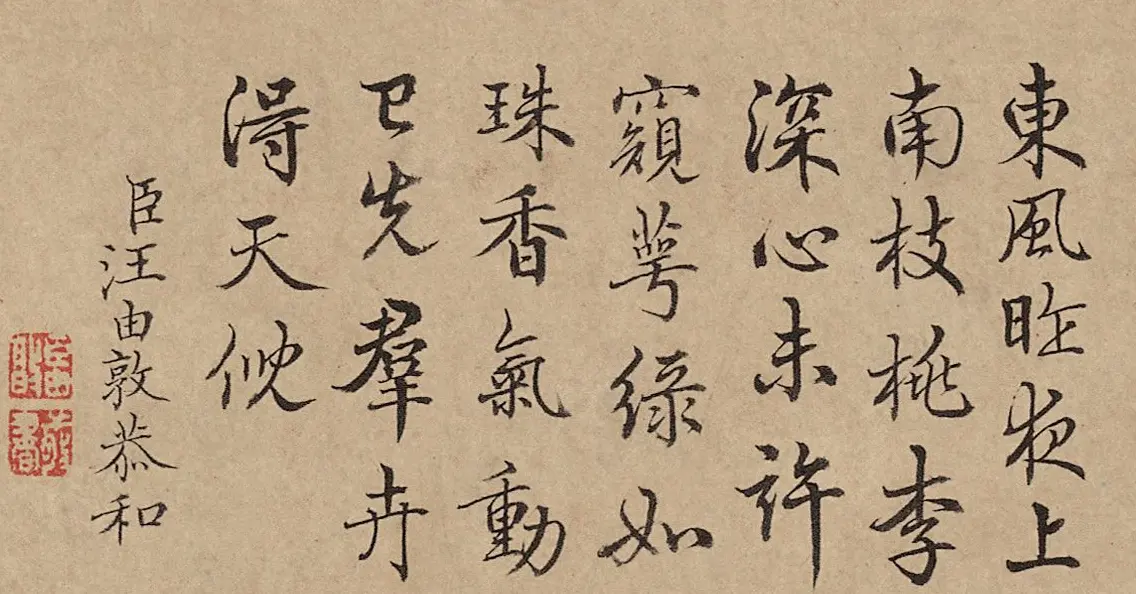 東風昨夜上
南枝桃李
深心未許
窺萼綠如
珠香氣動
已先羣卉
得天倪
臣汪由敦恭和